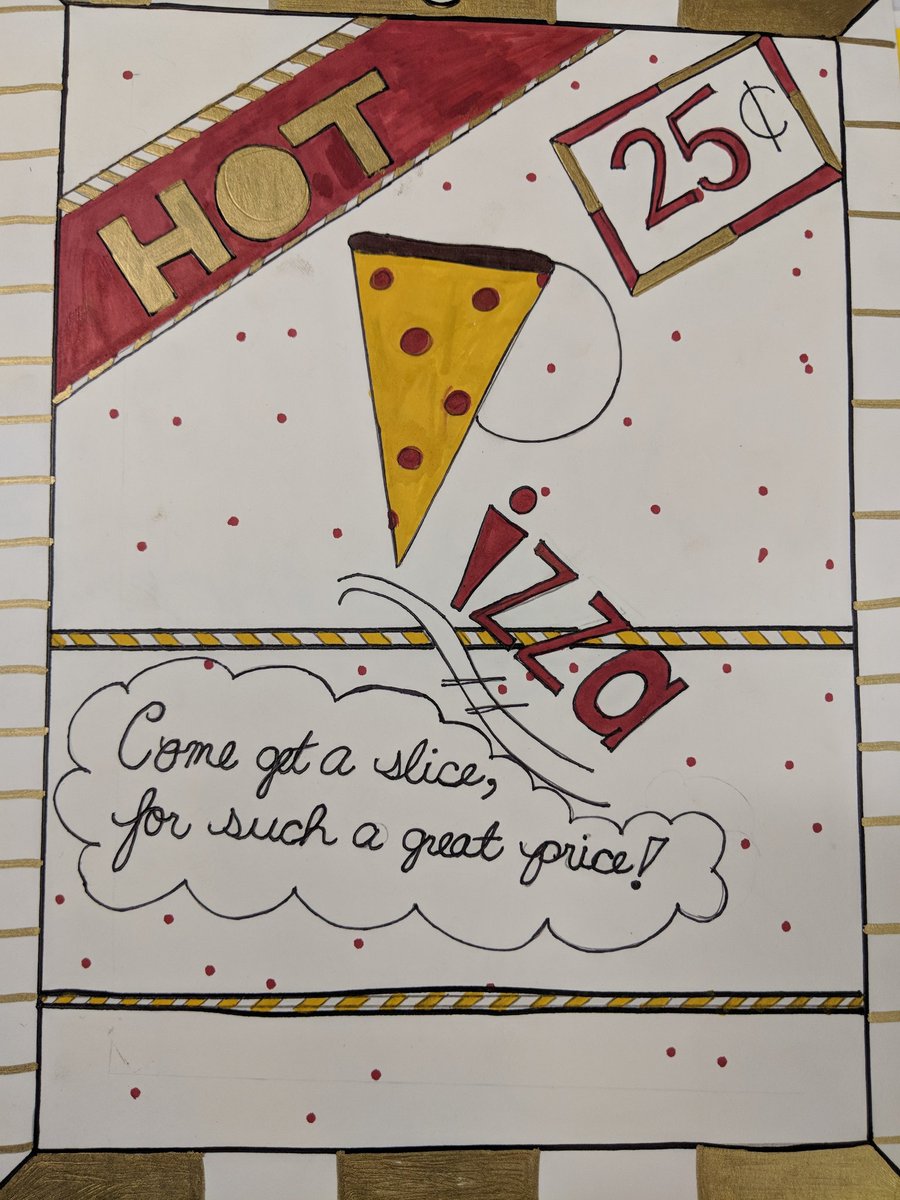 HOT
25¢
Pizza
Come get a slice,
for such a great price!